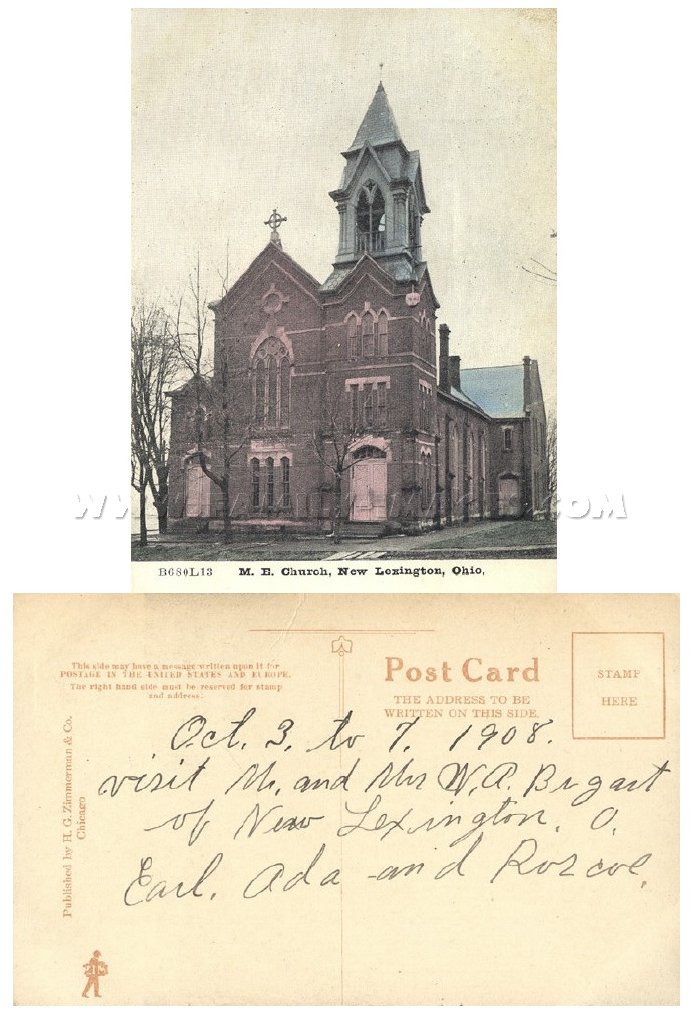 B680L13 M. E. Church, New Lexington, Ohio,
This side may have a message written upon it for
POSTAGE IN THE UNITED STATES AND EUROPE.
The right hand side must be reserved for stamp
and address.
Post Card
THE ADDRESS TO BE
WRITTEN ON THIS SIDE.
STAMP
HERE
Published by H. G. Zimmerman & Co.
Chicago
Oct. 3. to 7, 1908.
visit Mr. and Mrs W. A. Bugart
of New Lexington, O.
Earl, Ada and Roscoe.